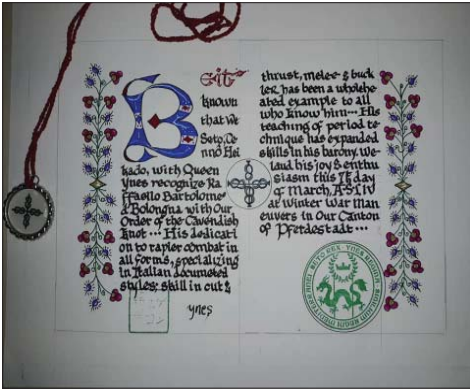 Be it
known
that we
Seto, Te
nno Hei
kado, with Queen
Ynes recognize Ra
ffaello Bartolomeo
d Bolongna with Our
Order of the Cavendish
Knot... His dedicati
on to rapier combat in
all forms, specializing
in Italian documeted
styles; skill in cut &
thrust, melee & buck
ler has been a wholehe
ated example to all
who know him... His
teaching of period te
chnique has expanded
skills in his barony. We
laud his joy & enthu
siasm this
of March, A·S·LIV
at Winter War Man
euvers in Our Canton
of Pferdestadt...
ynes
SETO REX · YNES REGINA